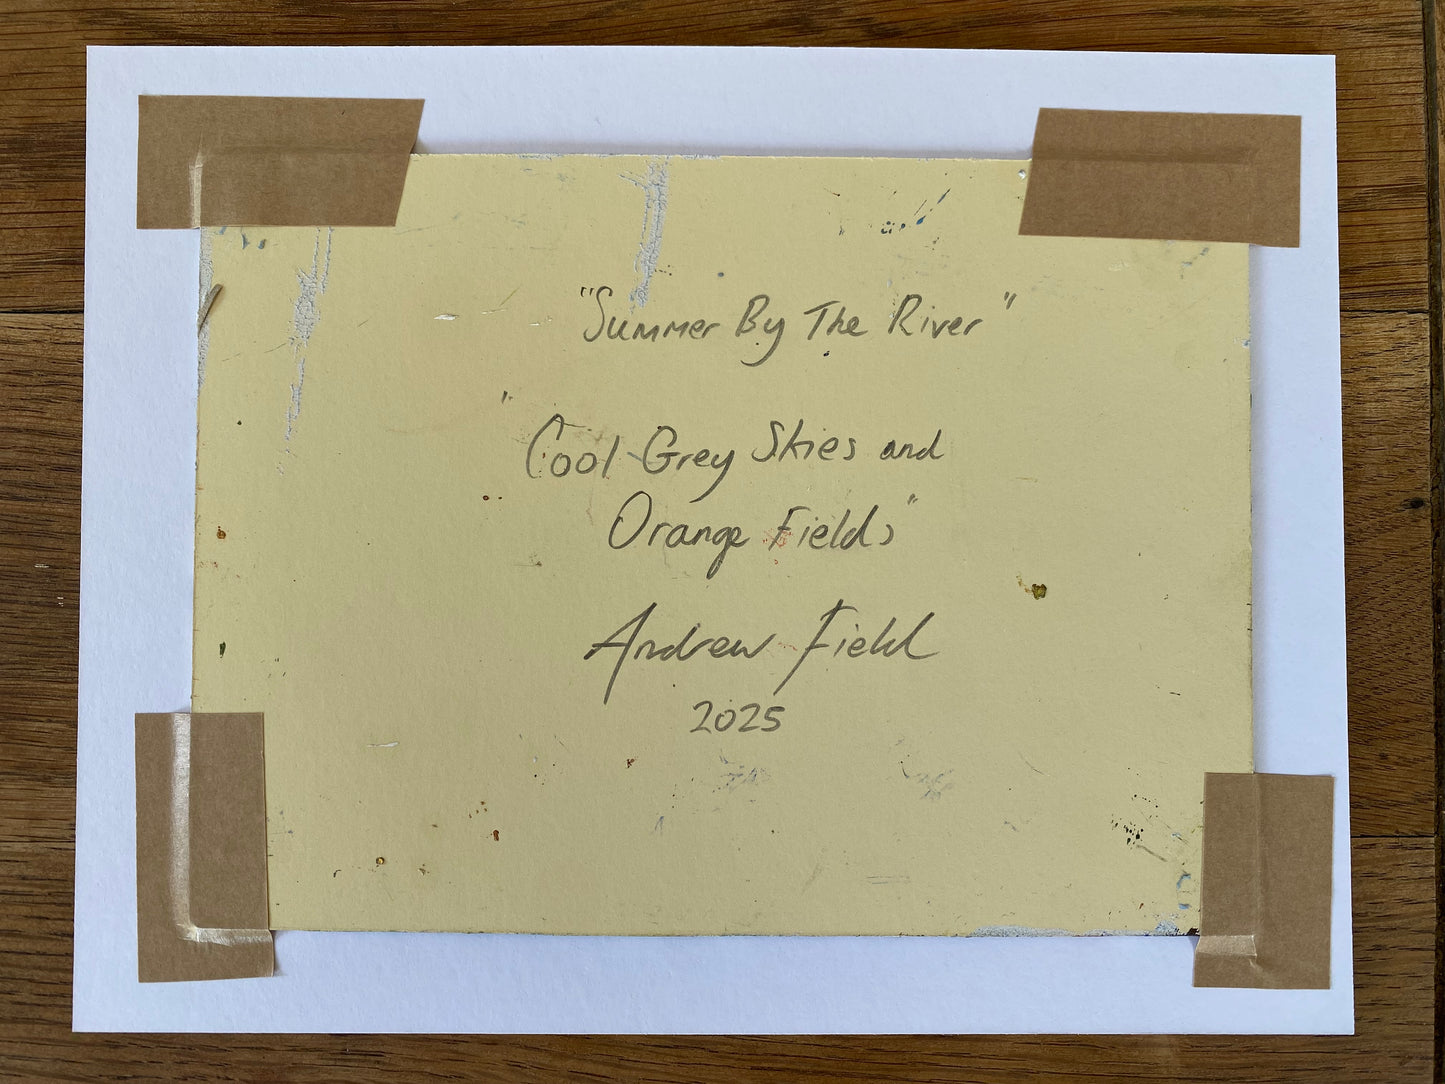 "Summer By The River"
"Cool Grey Skies and
Orange Fields"
Andrew Field
2025